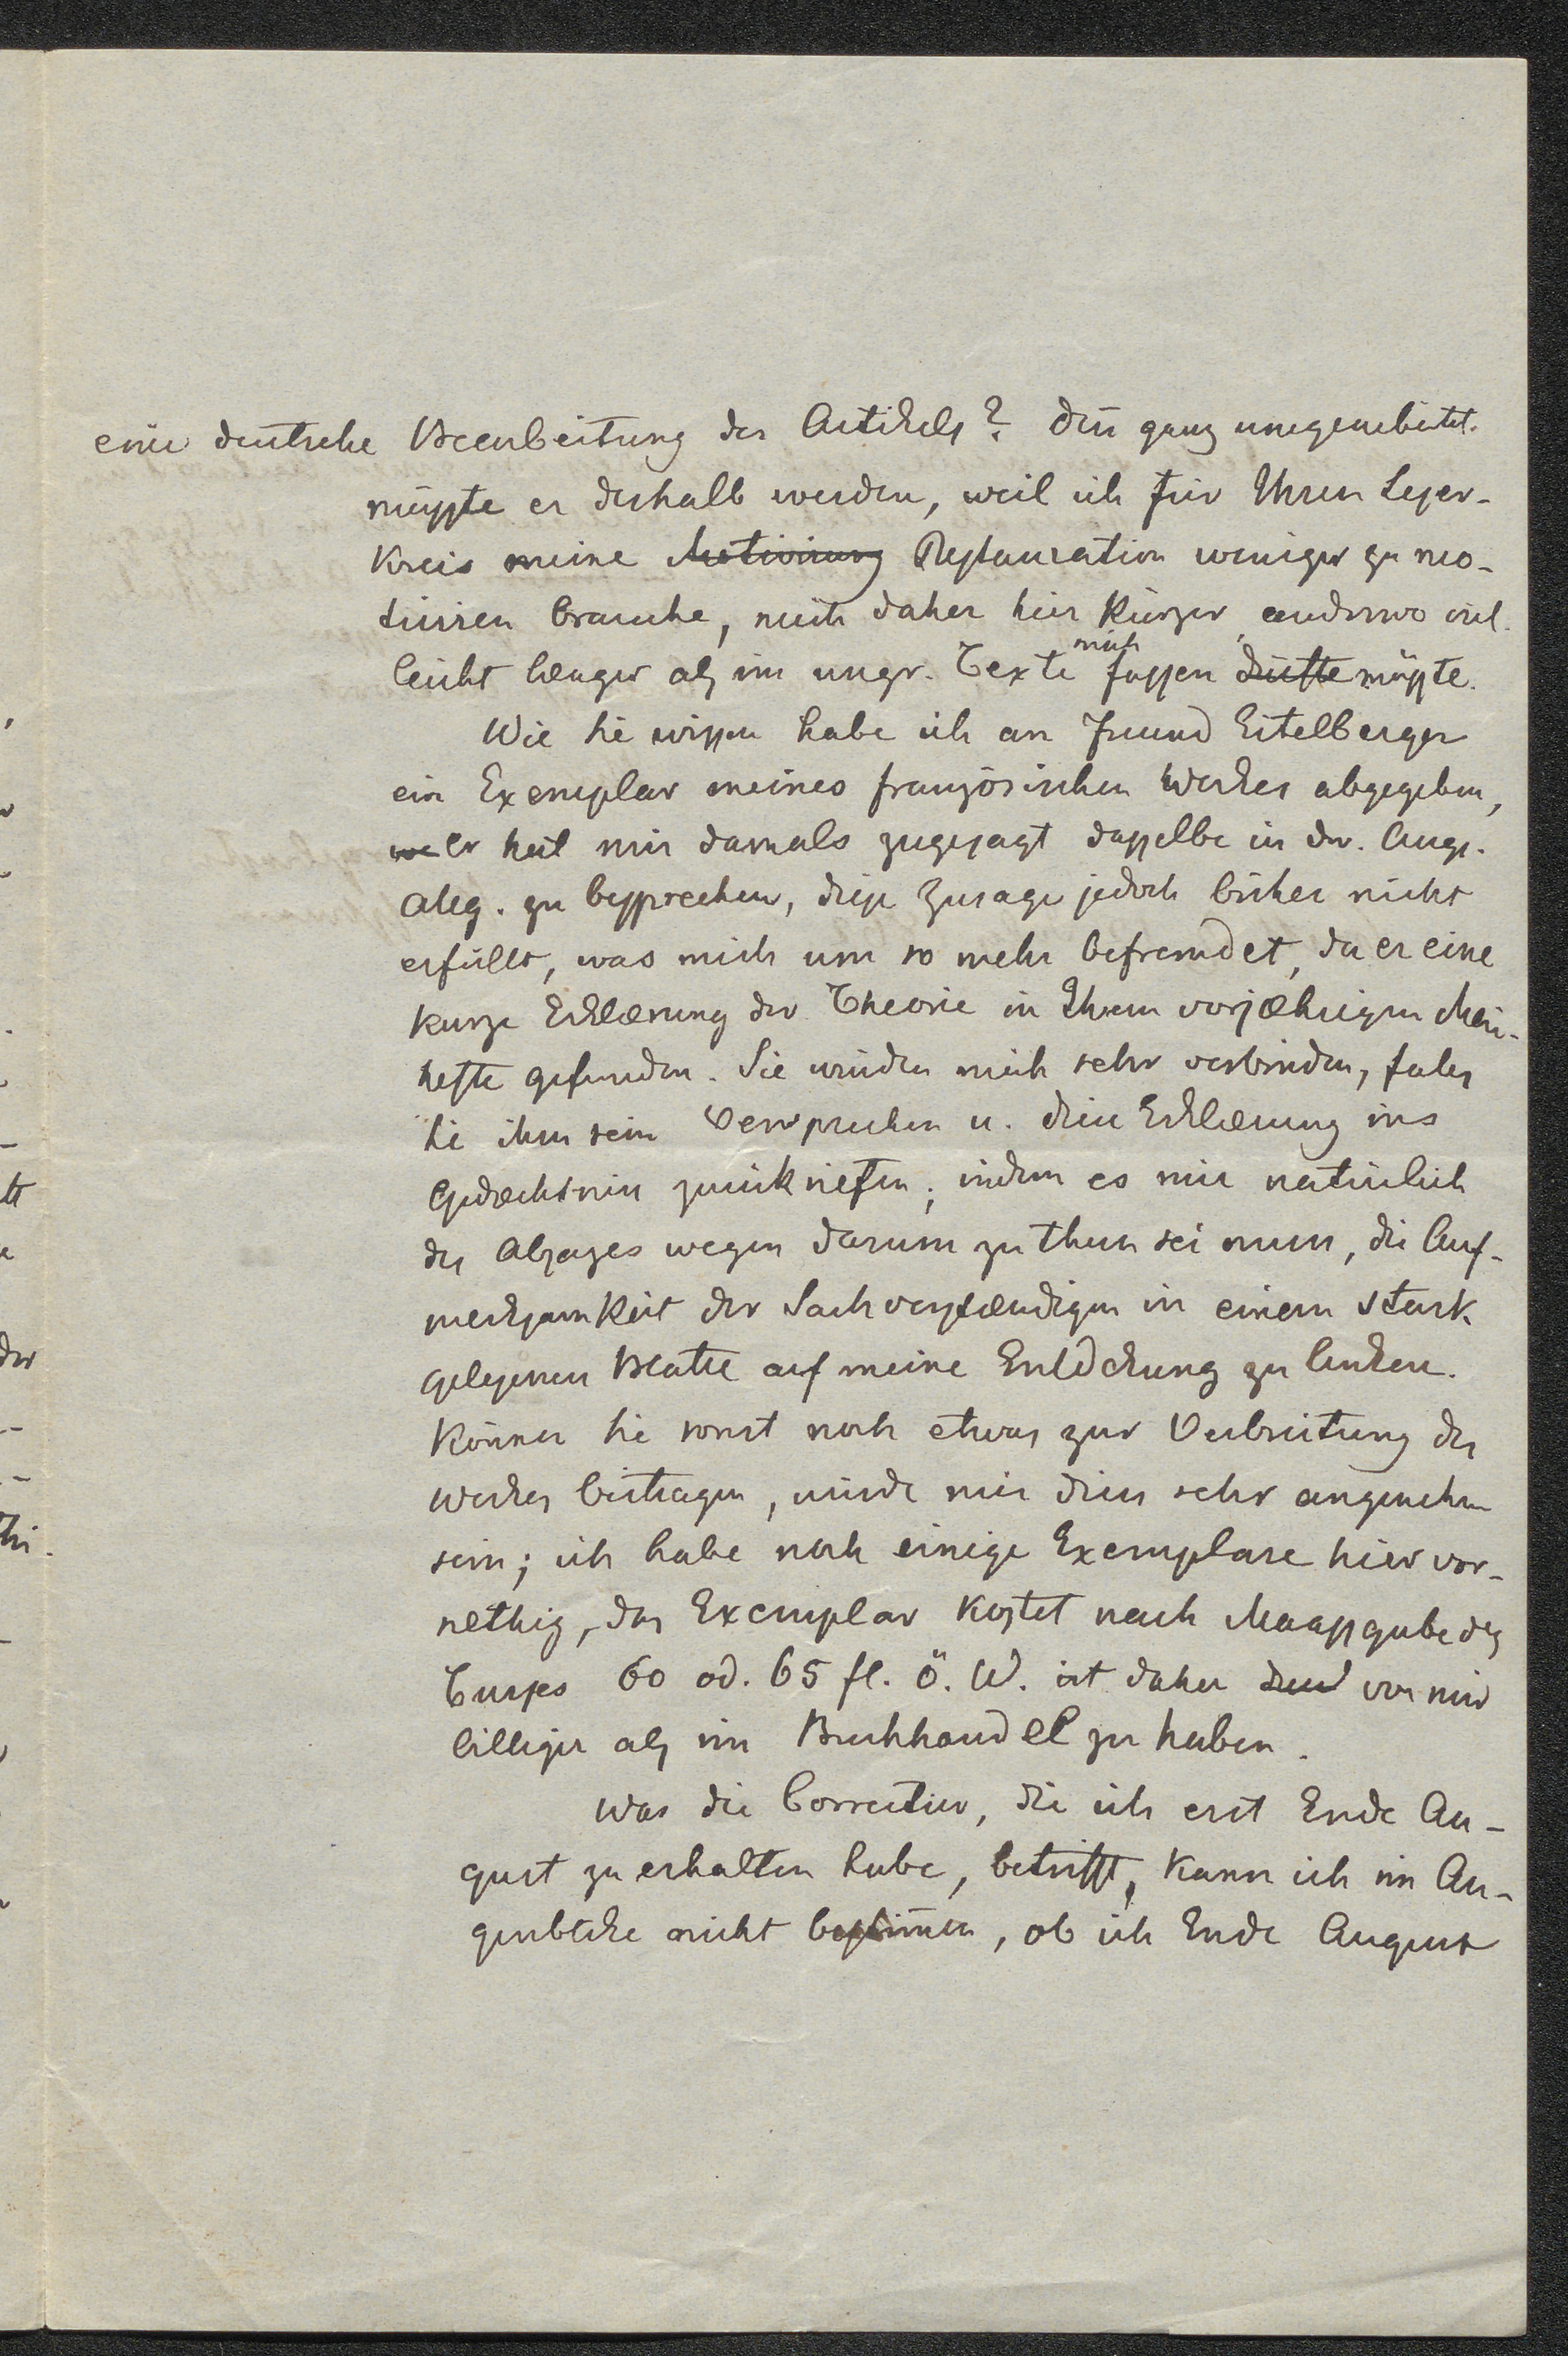 eine deutsche Bearbeitung des Artikels? Denn ganz umgearbeitet
müsste er deshalb werden, weil ich für Ihren Leser-
kreis meine Motivirung Restauration weniger zu mo-
tiviren brauche, mich daher hier kürzer, anderswo viel-
leicht længer als im ungr. Texte mich fassen dürfte müsste.
Wie Sie wissen habe ich an Freund Eitelberger
ein Exemplar meines französischen Werkes abgegeben,
we er hat mir damals zugesagt dasselbe in der Augs.
Allg. zu besprechen, diese Zusage jedoch bisher nicht
erfüllt, was mich um so mehr befremdet, da er eine
kurze Erklærung der Theorie in Ihrem vorjæhrigen Mai-
hefte gefunden. Sie würden mich sehr verbinden, falls
Sie ihm sein Versprechen u. diese Erklærung ins
Gedæchtniss zurükriefen; indem es mir natürlich
des Absazes wegen darum zu thun sei muss, die Auf-
merksamkeit der Sachverstændigen in einem stark
gelesenen Blatte auf meine Entdekung zu lenken.
Können Sie sonst noch etwas zur Verbreitung des
Werkes beitragen, würde mir dies sehr angenehm
sein; ich habe noch einige Exemplare hier vor-
rethig, das Exemplar kostet nach Maassgabe des
Curses 60 od. 65 fl. Ö. W. ist daher von mir
billiger als im Buchhandel zu haben.
Was die Correctur, die ich erst Ende Au-
gust zu erhalten habe, betrifft, kann ich im Au-
genblike nicht bestim̄en, ob ich Ende August